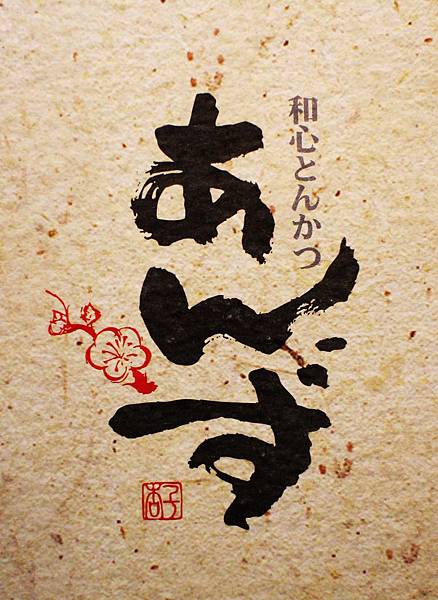 和心とんかつ
あんず
杏子